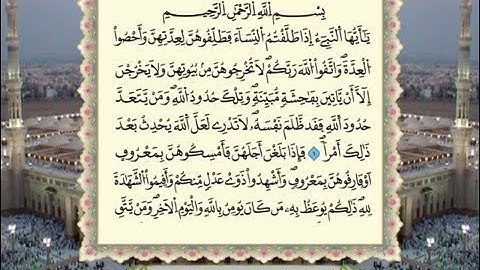 بِسْمِ اِللَّهِ اِلرَّحْمَٰنِ اِلرَّحِيمِ
يَٰٓأَيُّهَا اَلنَّبِےٓءُ اِ۪ذَا طَلَّقْتُمُ اُلنِّسَآءَ فَطَلِّقُوهُنَّ لِعِدَّتِهِنَّ وَأَحْصُواْ
اُلْعِدَّةَ وَاتَّقُواْ اُللَّهَ رَبَّكُمْ لَا تُخْرِجُوهُنَّ مِنۢ بُيُوتِهِنَّ وَلَا يَخْرُجْنَ
إِلَّآ أَنْ يَّاتِينَ بِفَٰحِشَةٍ مُّبَيِّنَةٍ وَتِلْكَ حُدُودُ اُللَّهِ وَمَنْ يَّتَعَدَّ
حُدُودَ اَللَّهِ فَقَد ظَّلَمَ نَفْسَهُۥ لَا تَدْرِے لَعَلَّ اَللَّهَ يُحْدِثُ بَعْدَ
ذَٰلِكَ أَمْراٗ ١ فَإِذَا بَلَغْنَ أَجَلَهُنَّ فَأَمْسِكُوهُنَّ بِمَعْرُوفٍ
اَوْ فَارِقُوهُنَّ بِمَعْرُوفٖ وَأَشْهِدُواْ ذَوَےْ عَدْلٖ مِّنكُمْ وَأَقِيمُواْ اُلشَّهَٰدَةَ
لِلهِ ذَٰلِكُمْ يُوعَظُ بِهِۦ مَن كَانَ يُومِنُ بِاللَّهِ وَالْيَوْمِ اِلَاخِرِ وَمَنْ يَّتَّقِ